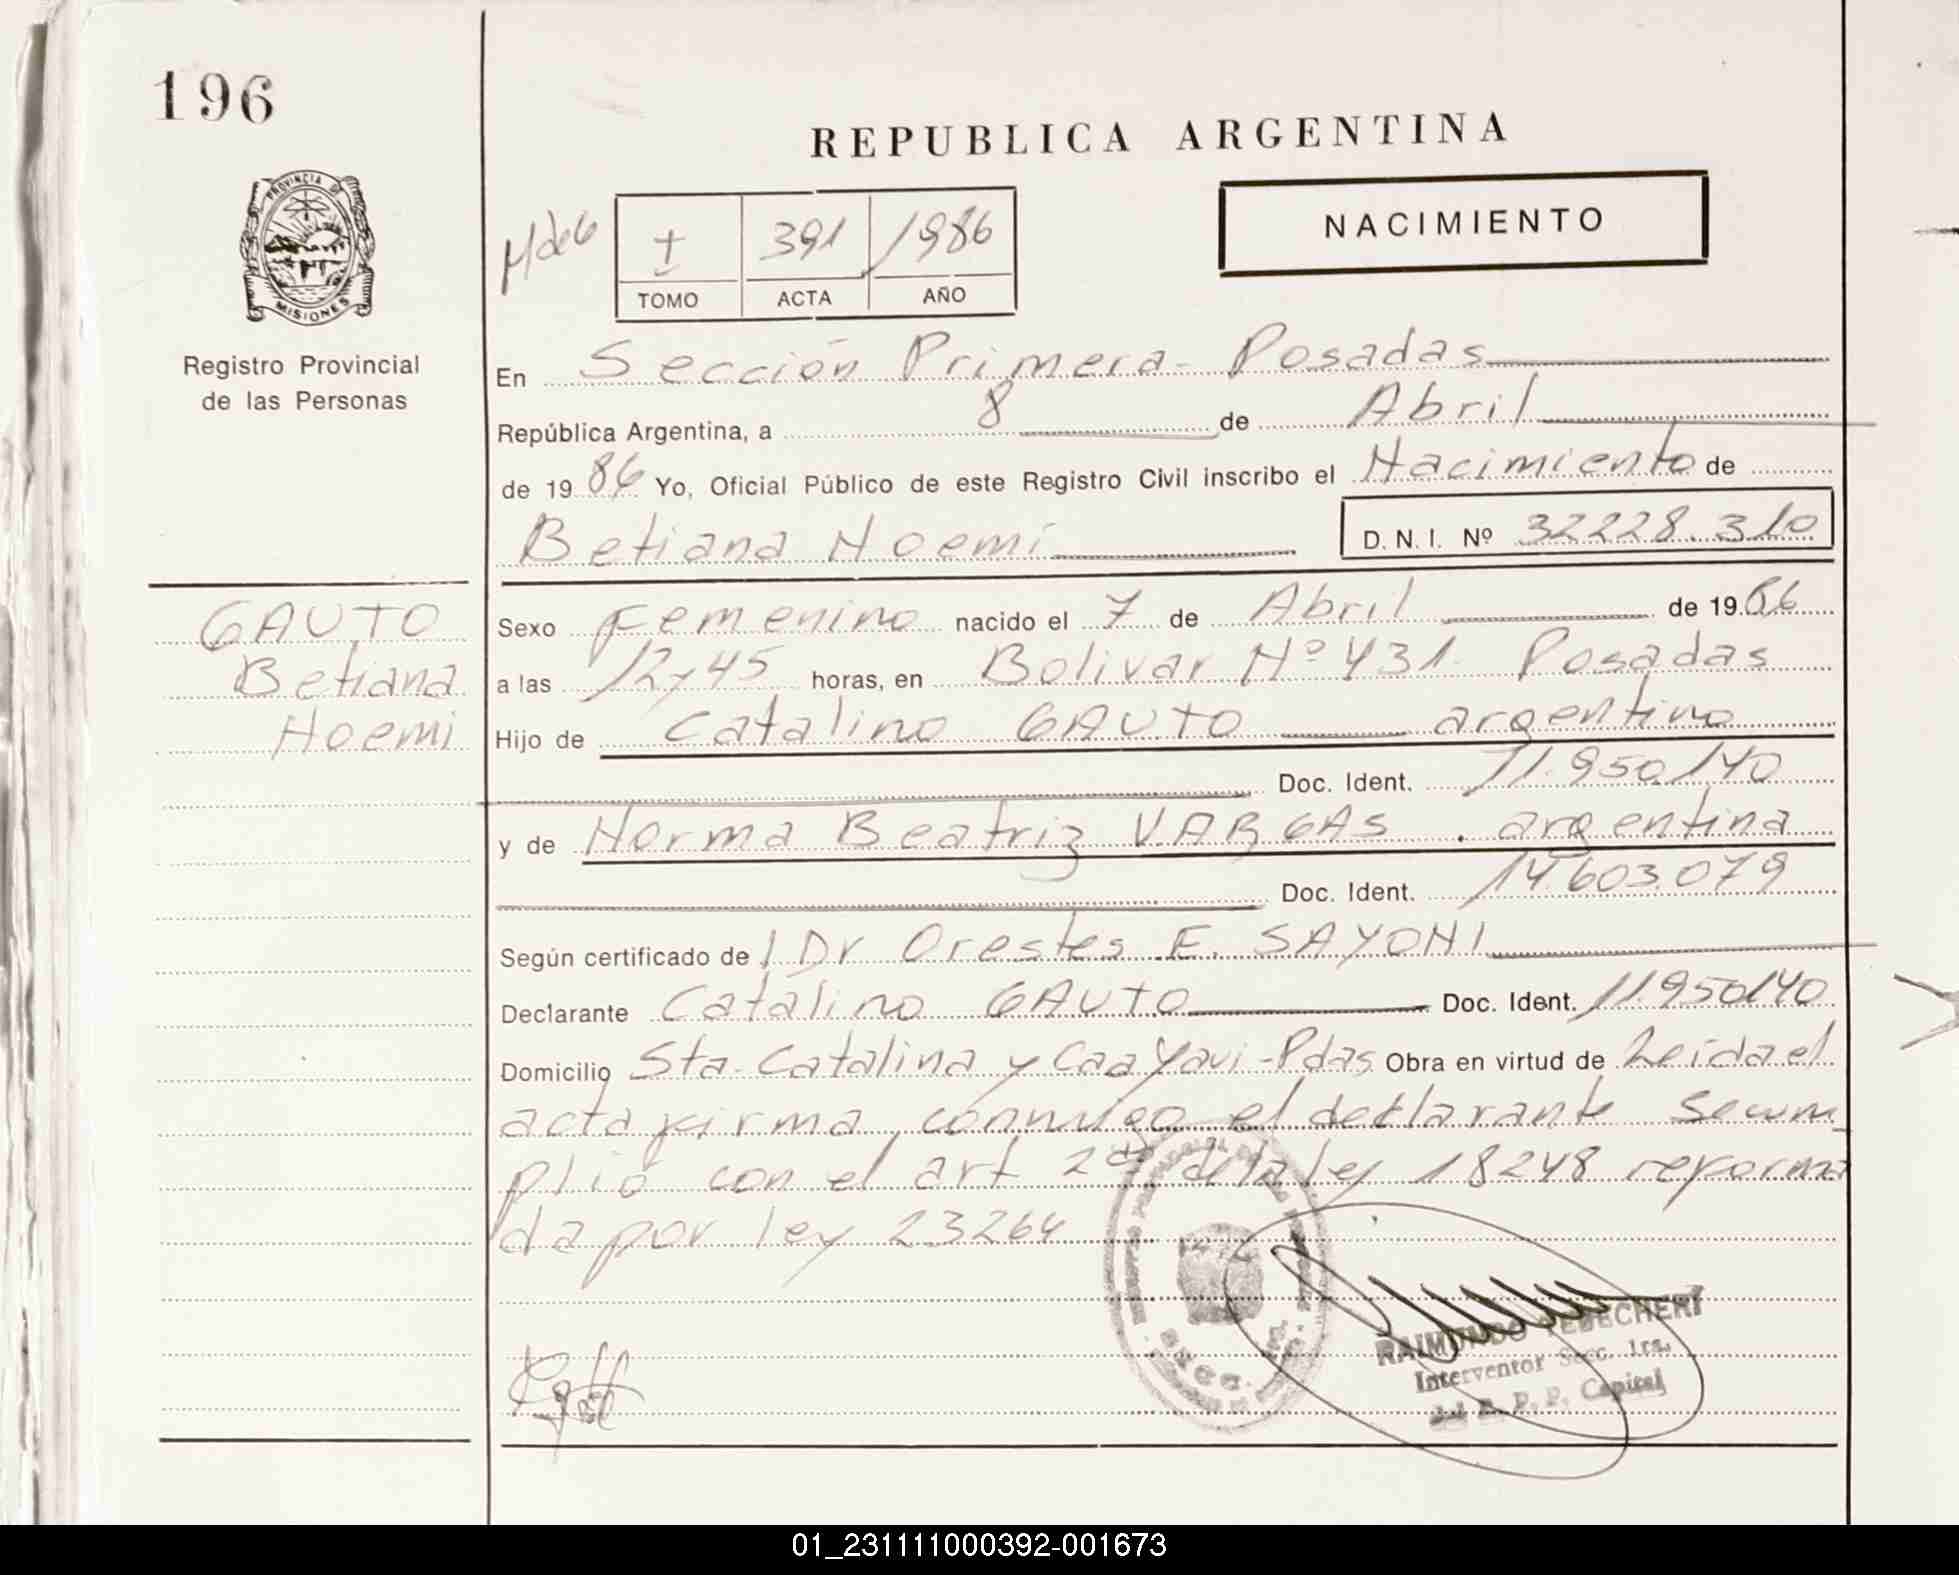 196
REPUBLICA ARGENTINA
PROVINCIA DE
MISIONES
Registro Provincial
de las Personas
NACIMIENTO
I 391 1986
TOMO ACTA AÑO
En Sección Primera - Posadas
República Argentina, a 8 de Abril
de 1986 Yo, Oficial Público de este Registro Civil inscribo el Nacimiento de
Betiana Noemi D. N. I. Nº 32228.310
GAUTO
Betiana
Noemi
Sexo Femenino nacido el 7 de Abril de 1986
a las 12y45 horas, en Bolivar Nº 431 Posadas
Hijo de Catalino GAUTO argentino
Doc. Ident. 11.950.140
y de Norma Beatriz VARGAS . argentina
Doc. Ident. 14.603.079
Según certificado de Dr Orestes E. SAYONI
Declarante Catalino GAUTO Doc. Ident. 11.950140
Domicilio Sta. Catalina y Caa Yari - Pdas Obra en virtud de Leída el
acta firma conmigo el declarante se cum
plió con el art 2do de la ley 18248 reforma
da por ley 23264
RAIMUNDO
Interventor Secc. 1ra.
Capital
01_231111000392-001673